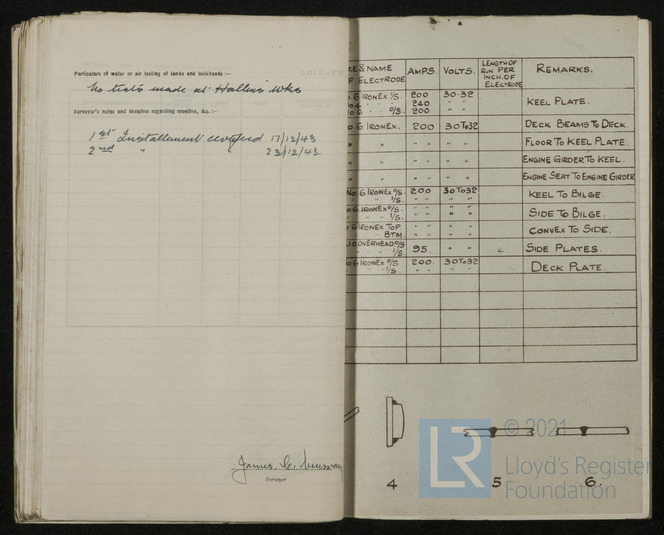 Particulars of water or air testing of tanks and bulkheads :—
No tests made at Hallins Wks
Surveyor's notes and sketches regarding scantlings, &c. :—
1st Installment certified 17/12/43
2nd " " 23/12/43.
James
Surveyor
E & NAME OF ELECTRODE AMPS. VOLTS. LENGTH OF RUN PER INCH OF ELECTRODE REMARKS.
G IRONEX I/S. 200 30-32
240 " "
O/S. 200 " "
KEEL PLATE.
G IRONEX. 200 30To32 DECK BEAMS TO DECK.
" " " " " FLOOR TO KEEL PLATE.
" " " " " ENGINE GIRDER TO KEEL.
" " " " " ENGINE SEAT TO ENGINE GIRDER
No G IRONEX O/S. 200 30To32 KEEL TO BILGE.
" " I/S. " " " "
G IRONEX O/S. " " " " SIDE TO BILGE.
" " I/S. " " " "
G IRONEX TOP " " " " CONVEX TO SIDE.
BTM. " " " "
OVERHEAD O/S 95. " " SIDE PLATES.
" I/S.
G IRONEX O/S 200. 30To32 DECK PLATE.
" " I/S " " " "
4
5
6.
© 2021
LR
Lloyd's Register
Foundation